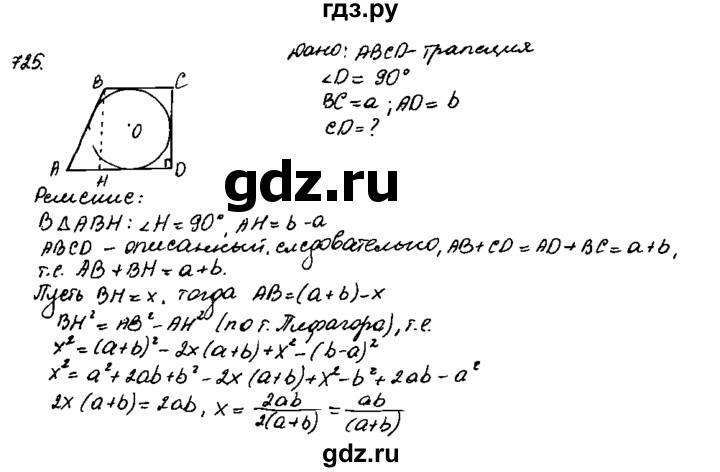 гдз.ру
725.
Дано: ABCD - трапеция
∠D = 90°
BC = a ; AD = b
CD = ?
B C
O
A H D
gdz.ru
Решение:
В △ABH: ∠H = 90°, AH = b - a
ABCD - описанный, следовательно, AB + CD = AD + BC = a + b,
т.е. AB + BH = a + b.
Пусть BH = x, тогда AB = (a + b) - x
BH² = AB² - AH² (по т. Пифагора), т.е.
x² = (a+b)² - 2x(a+b) + x² - (b-a)²
x² = a² + 2ab + b² - 2x(a+b) + x² - b² + 2ab - a²
2x(a+b) = 2ab, x = 2ab / 2(a+b) = ab / (a+b)
gdz.ru